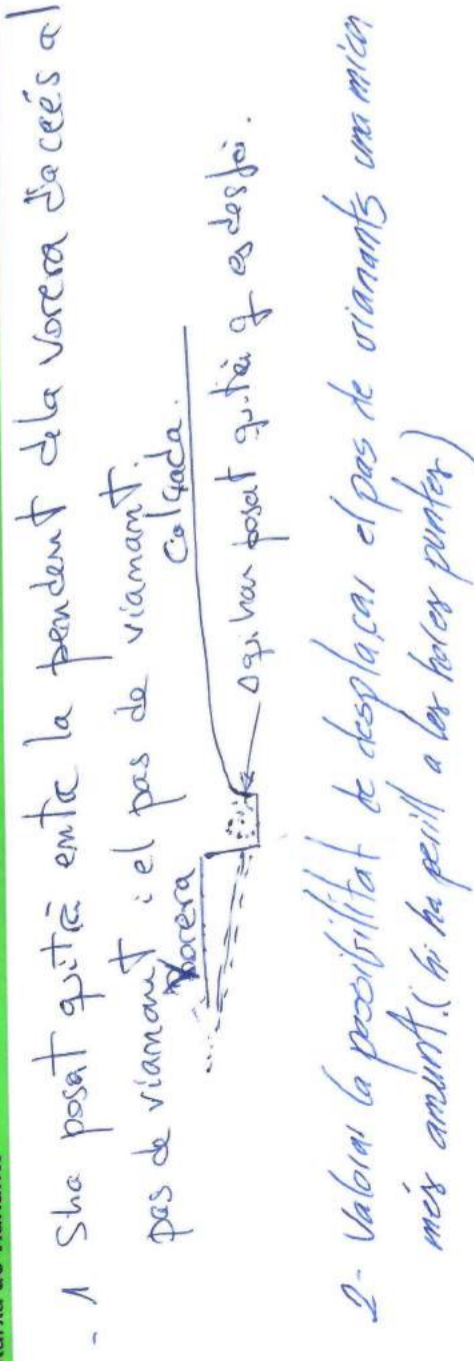 - 1 Sha posat quitrà entre la pendent de la vorera d'accés al
pas de vianant i el pas de vianant.
Vorera
Calçada.
Aqui han posat quitrà q es desfà.
2- Valorar la possibilitat de desplaçar el pas de vianants una mica
més amunt. (hi ha perill a les hores puntes)